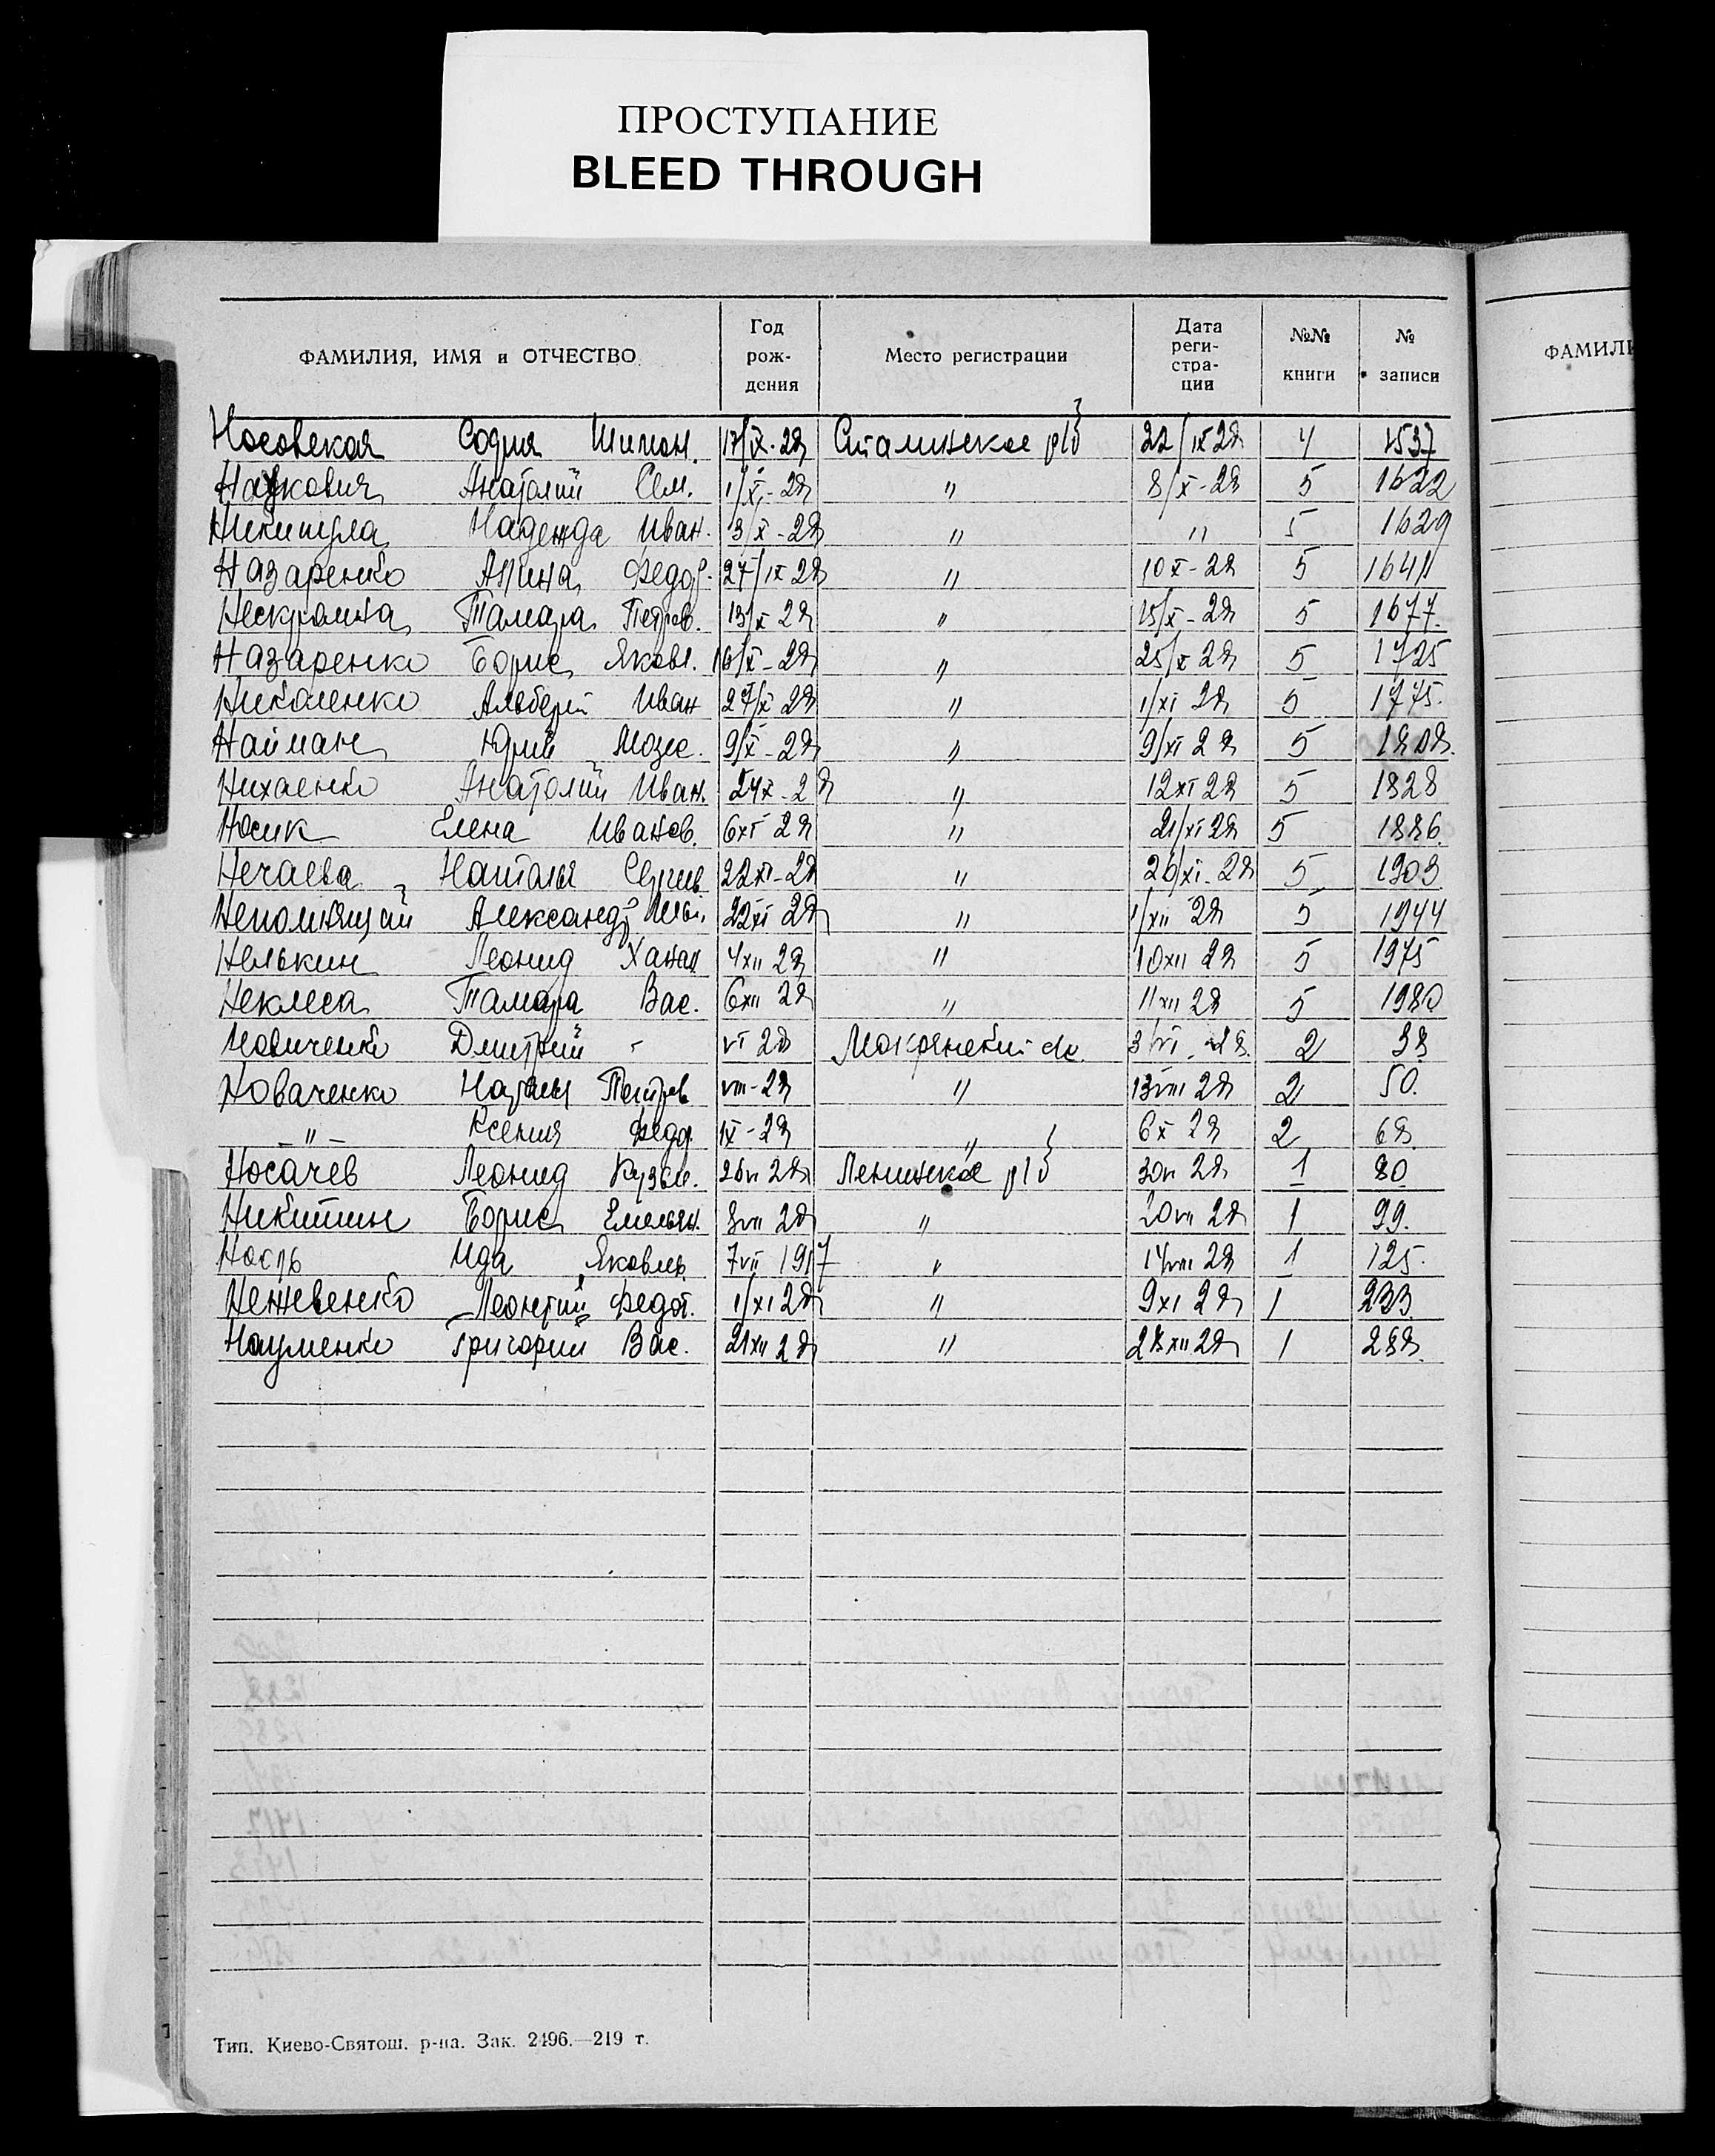 ПРОСТУПАНИЕ
BLEED THROUGH
ФАМИЛИЯ, ИМЯ и ОТЧЕСТВО Год рождения Место регистрации Дата регистрации №№ книги № записи
ФАМИЛИ
Носовская София Шимон. 17/IX-28 Сталинское р/б 22/IX 28 4 1537
Наукович Анатолий Сем. 1/X-28 " 8/X-28 5 1622
Никитула Надежда Иван. 3/X-28 " " 5 1629
Назаренко Федор. 27/IX 28 " 10 X-28 5 1641
Нескромна Тамара Петров. 13/X 28 " 15/X-28 5 1677.
Назаренко Борис Яковл. 16/X-28 " 25/X 28 5 1725
Николенко Альберт Иван 27/X 28 " 1/XI 28 5 1775.
Найман Юрий Мозес. 9/X-28 " 9/XI 28 5 1808.
Нихаенко Анатолий Иван. 24X-28 " 12XI 28 5 1828
Носик Елена Иванов. 6XI 28 " 21/XI 28 5 1886.
Нечаева Наталья Сергеев 22XI-28 " 26/XI-28 5 1903
Непомнящий Александр 22XI 28 " 1/XII 28 5 1944
Нелькин Леонид Ханан 4XII 28 " 10XII 28 5 1975
Неклеса Тамара Вас. 6XII 28 " 11XII 28 5 1980
Новиченко Дмитрий - VI 28 Мокрянский с/с. 3/VI-28. 2 38
Новаченко Наталья Петров VIII-28 " 13VIII 28 2 50.
—"— Ксения Федо. IX-28 " 6X 28 2 68.
Носачев Леонид Кузьм. 26VI 28 Ленинское р/б 30VI 28 1 80
Никитин Борис Емельян. 8VII 28 " 20VII 28 1 99.
Ида Яковлев. 7VII 1917 " 14VIII 28 1 125.
Неневенко Леонтий Федот. 1/XI 28 " 9XI 28 1 233
Науменко Григорий Вас. 21XII 28 " 28XII 28 1 288.
Тип. Киево-Святош. р-на. Зак. 2496.—219 т.